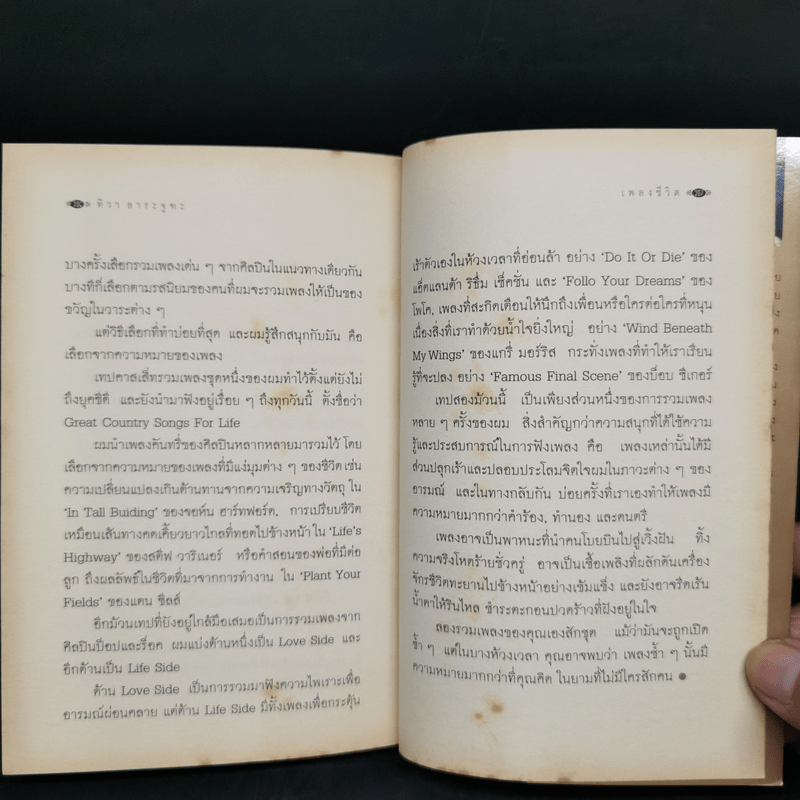 ทิวา สาระจูฑะ
บางครั้งเลือกรวมเพลงเด่น ๆ จากศิลปินในแนวทางเดียวกัน
บางทีก็เลือกตามรสนิยมของคนที่ผมจะรวมเพลงให้เป็นของ
ขวัญในวาระต่าง ๆ
แต่วิธีเลือกที่ทำบ่อยที่สุด และผมรู้สึกสนุกกับมัน คือ
เลือกจากความหมายของเพลง
เทปคาสเส็ทรวมเพลงชุดหนึ่งของผมทำไว้ตั้งแต่ยังไม่
ถึงยุคซีดี และยังนำมาฟังอยู่เรื่อย ๆ ถึงทุกวันนี้ ตั้งชื่อว่า
Great Country Songs For Life
ผมนำเพลงคันทรี่ของศิลปินหลากหลายมารวมไว้ โดย
เลือกจากความหมายของเพลงที่มีแง่มุมต่าง ๆ ของชีวิต เช่น
ความเปลี่ยนแปลงเกินต้านทานจากความเจริญทางวัตถุ ใน
'In Tall Buiding' ของจอห์น ฮาร์ทฟอร์ด, การเปรียบชีวิต
เหมือนเส้นทางคดเคี้ยวยาวไกลที่ทอดไปข้างหน้า ใน 'Life's
Highway' ของสตีฟ วาริเนอร์ หรือคำสอนของพ่อที่มีต่อ
ลูก ถึงผลลัพธ์ในชีวิตที่มาจากการทำงาน ใน 'Plant Your
Fields' ของแดน ซีลส์
อีกม้วนเทปที่ยังอยู่ใกล้มือเสมอเป็นการรวมเพลงจาก
ศิลปินป็อปและร็อค ผมแบ่งด้านหนึ่งเป็น Love Side และ
อีกด้านเป็น Life Side
ด้าน Love Side เป็นการรวมมาฟังความไพเราะเพื่อ
อารมณ์ผ่อนคลาย แต่ด้าน Life Side มีทั้งเพลงเพื่อกระตุ้น
เพลงชีวิต
เร้าตัวเองในห้วงเวลาที่อ่อนล้า อย่าง 'Do It Or Die' ของ
แอ็ตแลนต้า ริธึ่ม เซ็คชั่น และ 'Follo Your Dreams' ของ
โพโค, เพลงที่สะกิดเตือนให้นึกถึงเพื่อนหรือใครต่อใครที่หนุน
เนื่องสิ่งที่เราทำด้วยน้ำใจยิ่งใหญ่ อย่าง 'Wind Beneath
My Wings' ของแกรี่ มอร์ริส กระทั่งเพลงที่ทำให้เราเรียน
รู้ที่จะปลง อย่าง 'Famous Final Scene' ของบ็อบ ซีเกอร์
เทปสองม้วนนี้ เป็นเพียงส่วนหนึ่งของการรวมเพลง
หลาย ๆ ครั้งของผม สิ่งสำคัญกว่าความสนุกที่ได้ใช้ความ
รู้และประสบการณ์ในการฟังเพลง คือ เพลงเหล่านั้นได้มี
ส่วนปลุกเร้าและปลอบประโลมจิตใจผมในภาวะต่าง ๆ ของ
อารมณ์ และในทางกลับกัน บ่อยครั้งที่เราเองทำให้เพลงมี
ความหมายมากกว่าคำร้อง, ทำนอง และดนตรี
เพลงอาจเป็นพาหนะที่นำคนโบยบินไปสู่เวิ้งฝัน ทิ้ง
ความจริงโหดร้ายชั่วครู่ อาจเป็นเชื้อเพลิงที่ผลักดันเครื่อง
จักรชีวิตทะยานไปข้างหน้าอย่างเข้มแข็ง และยังอาจรีดเร้น
น้ำตาให้รินไหล ชำระตะกอนปวดร้าวที่ฝังอยู่ในใจ
ลองรวมเพลงของคุณเองสักชุด แม้ว่ามันจะถูกเปิด
ซ้ำ ๆ แต่ในบางห้วงเวลา คุณอาจพบว่า เพลงซ้ำ ๆ นั้นมี
ความหมายมากกว่าที่คุณคิด ในยามที่ไม่มีใครสักคน ●